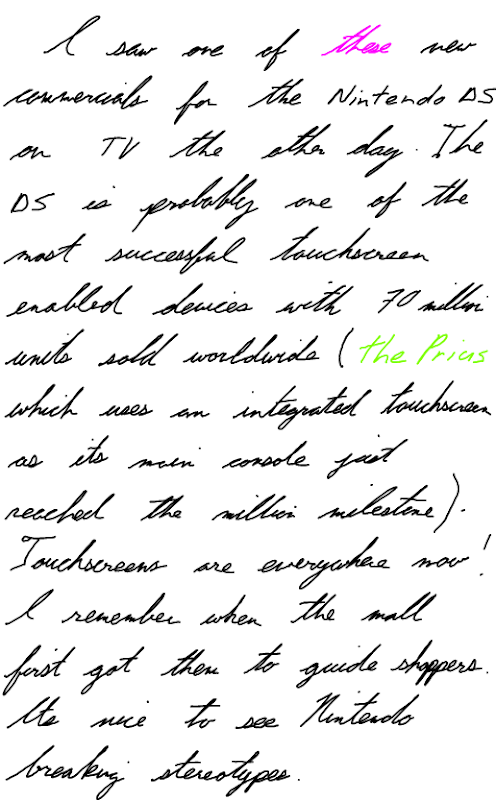 I saw one of these new
commercials for the Nintendo DS
on TV the other day. The
DS is probably one of the
most successful touchscreen
enabled devices with 70 million
units sold worldwide (the Prius
which uses an integrated touchscreen
as its main console just
reached the million milestone).
Touchscreens are everywhere now!
I remember when the mall
first got them to guide shoppers.
Its nice to see Nintendo
breaking stereotypes.